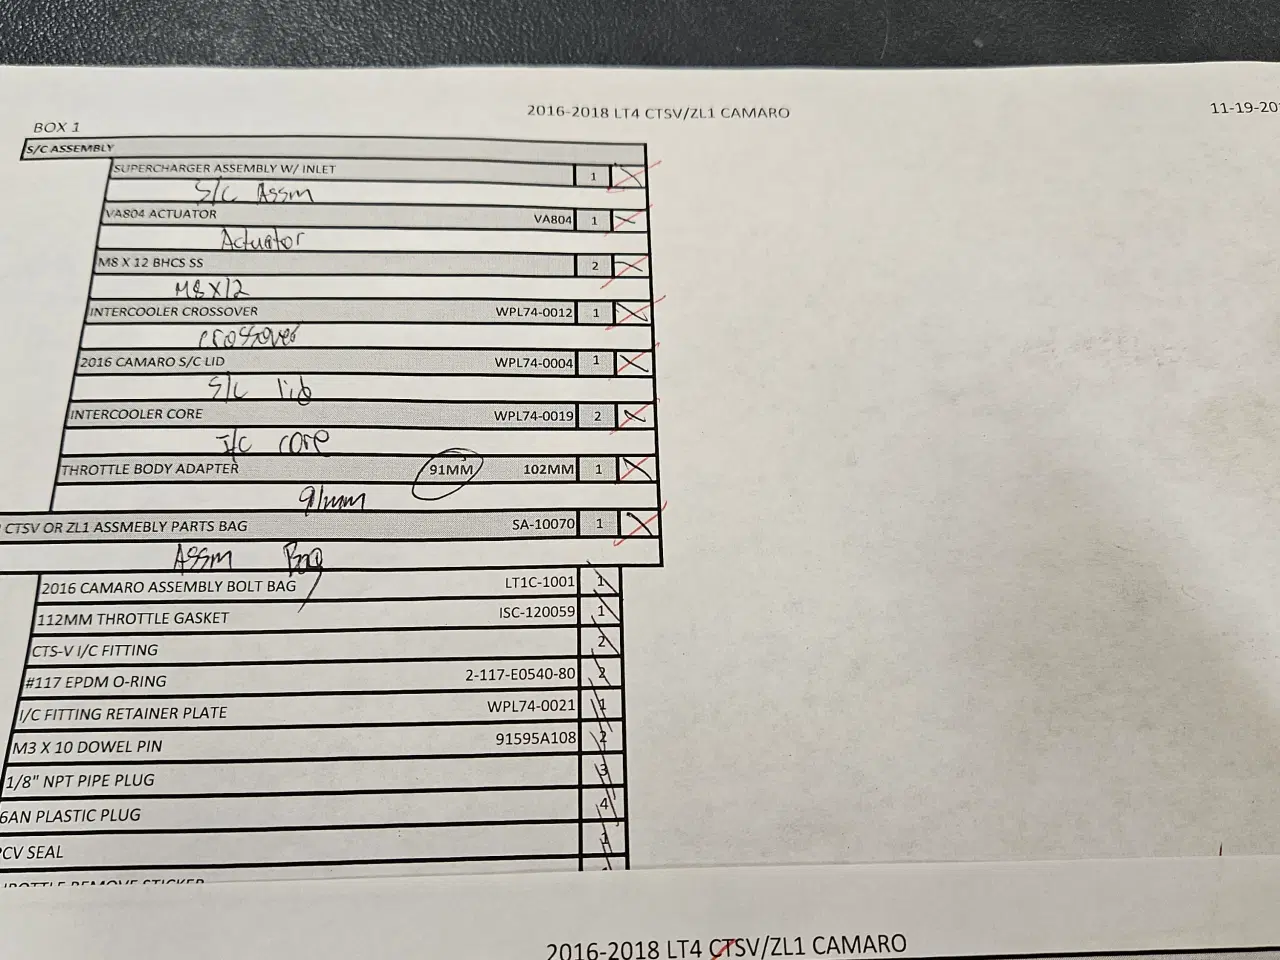 2016-2018 LT4 CTSV/ZL1 CAMARO
11-19-20
BOX 1
S/C ASSEMBLY
SUPERCHARGER ASSEMBLY W/ INLET 1
S/C Assm
VA804 ACTUATOR VA804 1
Actuator
M8 X 12 BHCS SS 2
M8 X12
INTERCOOLER CROSSOVER WPL74-0012 1
crossover
2016 CAMARO S/C LID WPL74-0004 1
S/C lid
INTERCOOLER CORE WPL74-0019 2
I/C core
THROTTLE BODY ADAPTER 91MM 102MM 1
91mm
CTSV OR ZL1 ASSMEBLY PARTS BAG SA-10070 1
Assm Bag
2016 CAMARO ASSEMBLY BOLT BAG LT1C-1001 1
112MM THROTTLE GASKET ISC-120059 1
CTS-V I/C FITTING 2
#117 EPDM O-RING 2-117-E0540-80 2
I/C FITTING RETAINER PLATE WPL74-0021 1
M3 X 10 DOWEL PIN 91595A108 2
1/8" NPT PIPE PLUG 3
6AN PLASTIC PLUG 4
PCV SEAL 1
THROTTLE REMOVE STICKER
2016-2018 LT4 CTSV/ZL1 CAMARO